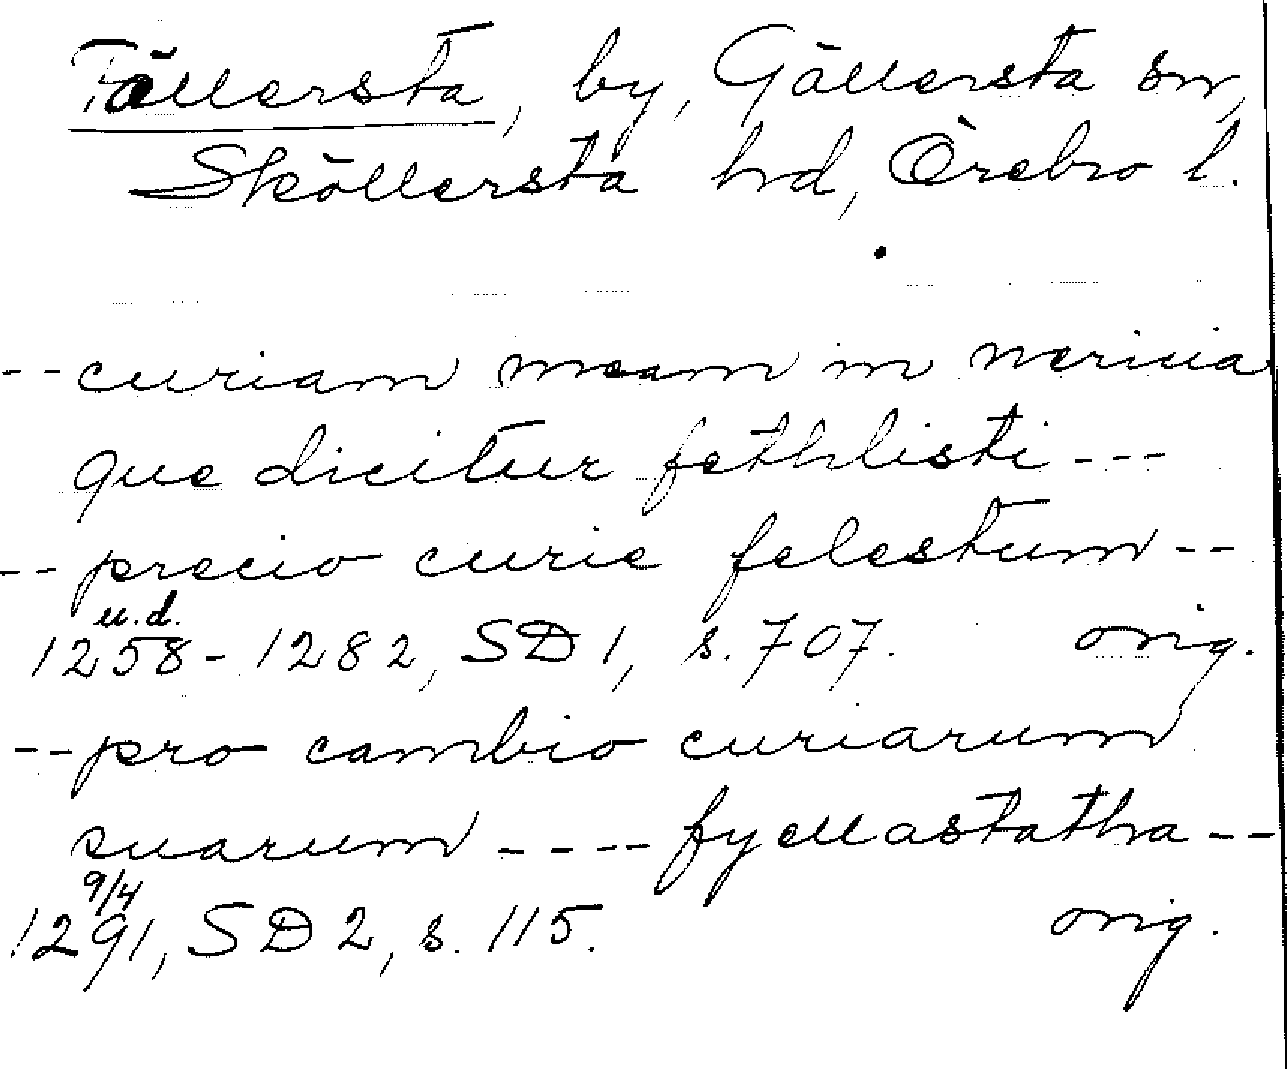 Fällersta, by, Gällersta sn,
Sköllersta hd, Örebro l.
-- curiam meam in nericia
que dicitur fethlisti ---
-- precio curie felestum --
u.d.
1258-1282, SD 1, s. 707. orig.
-- pro cambio curiarum
suarum ---- fyællastatha --
9/4
1291, SD 2, s. 115. orig.